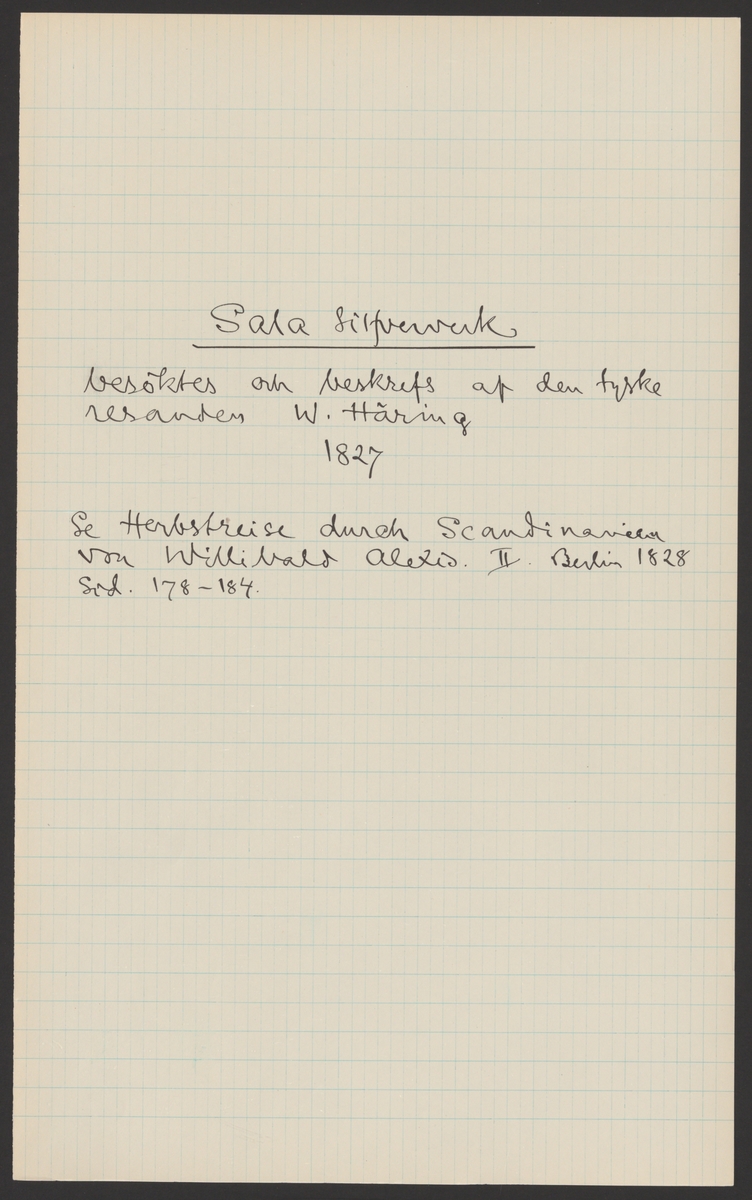 Sala Silfververk
besöktes och beskrefs af den tyske
resanden W. Häring
1827
Se Herbstreise durch Scandinavien
von Willibald Alexis. II. Berlin 1828
Sid. 178-184.